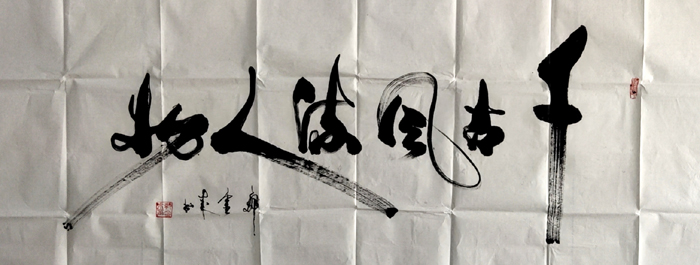 千古風流人物